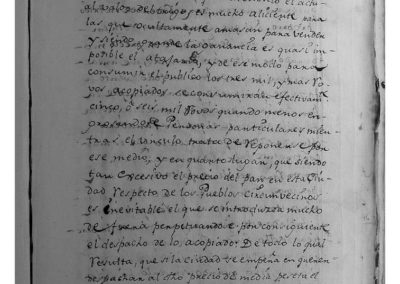 al precio del trigo, es mucho aliciente para
las que ocultamente amasan para vender
y siendo donde la ganancia es quasi im-
posible el atajarla, y de ese modo para
consumir el publico los tres mil, y mas Ro-
vos acopiados se consumiran efectivamte
cinco, ó seis mil Rovos quando menos en
de Personas particulares mien-
tras el vinculo trata de reponerse por
ese medio, y en quanto lugar, que siendo
tan excesivo el precio del pan en esta Ciu-
dad respecto de los Pueblos Circumvecinos
es inevitable el que se introduzca mucho
de fuera perpetuandose por consiguiente
el despacho de lo acopiado. De todo lo qual
resulta, que si la Ciudad se empeña en querer
despachar al dho precio de media peseta el